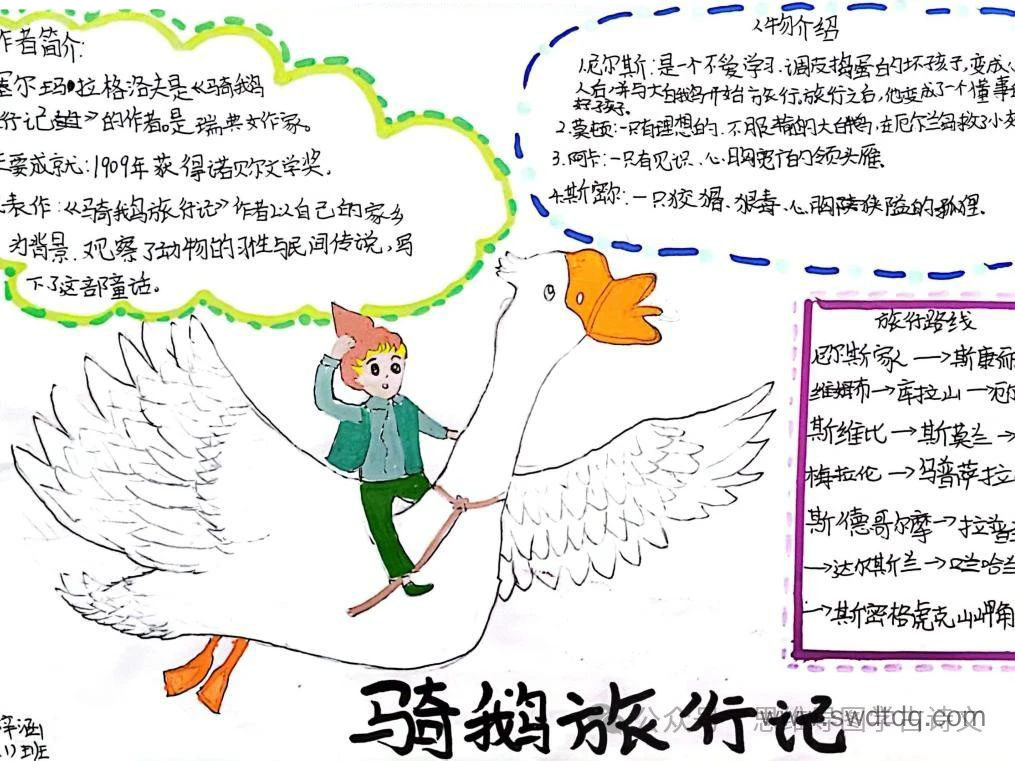 作者简介:
塞尔玛•拉格洛夫是《骑鹅
行记》的作者。是瑞典女作家。
主要成就:1909年获得诺贝尔文学奖.
表作:《骑鹅旅行记》作者以自己的家乡
为背景.观察了动物的习性与民间传说,写
下了这部童话。
人物介绍
1.尼尔斯:是一个不爱学习.调皮捣蛋的坏孩子,变成小
人后,并与大白鹅开始旅行。旅行之后,他变成了一个懂事的
好孩子。
2.莫顿:一只有理想的.不服输的大白鹅,在厄尔兰岛救了小灰
3.阿卡:一只有见识.心胸宽广的领头雁。
4.斯密尔:一只狡猾.狠毒.心胸狭隘的狐狸.
旅行路线
尼尔斯家→斯康耐
维姆布→库拉山→厄尔
斯维比→斯莫兰→
梅拉伦→乌普萨拉
斯德哥尔摩→拉普兰
→达尔斯兰→
→斯密格虎克山岬角
骑鹅旅行记
涵
(1)班
公众号·思维导图学古诗文
www.swdtdq.com